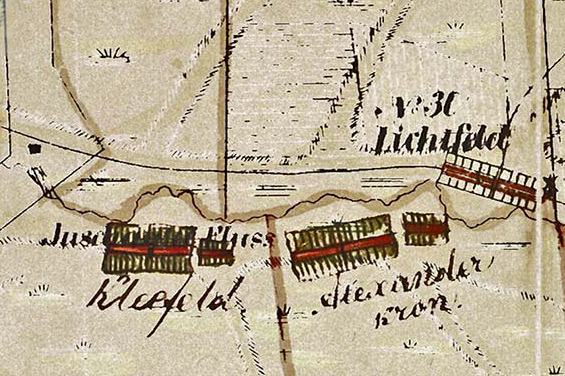 N.30
Lichtfeld
Fluss
Kleefeld
Alexander
kron